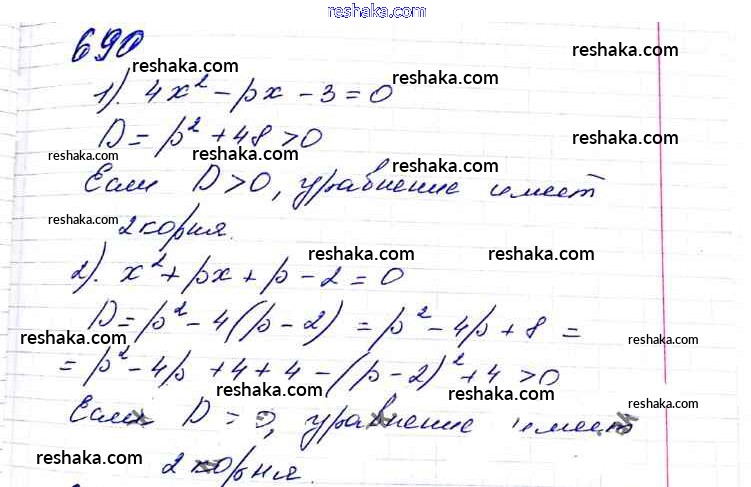 reshaka.com
690
reshaka.com
reshaka.com
reshaka.com
1). 4x² - px - 3 = 0
D = p² + 48 > 0
reshaka.com
reshaka.com
reshaka.com
reshaka.com
Если D > 0, уравнение имеет
reshaka.com
2 корня.
reshaka.com
reshaka.com
2). x² + px + p - 2 = 0
D = p² - 4(p - 2) = p² - 4p + 8 =
reshaka.com
reshaka.com
= p² - 4p + 4 + 4 - (p - 2)² + 4 > 0
reshaka.com
reshaka.com
Если D = 0, уравнение имеет
reshaka.com
reshaka.com
2 корня.